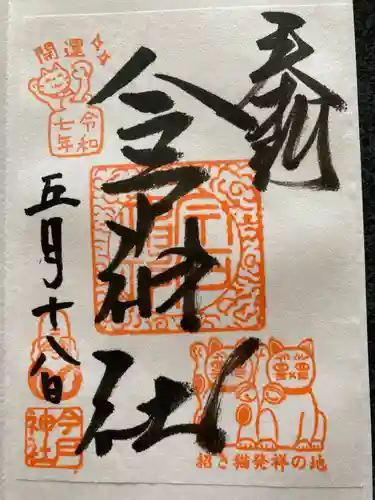 奉拝
今戸神社
開運
令和
七年
五月十八日
今戸
神社
招き猫発祥の地